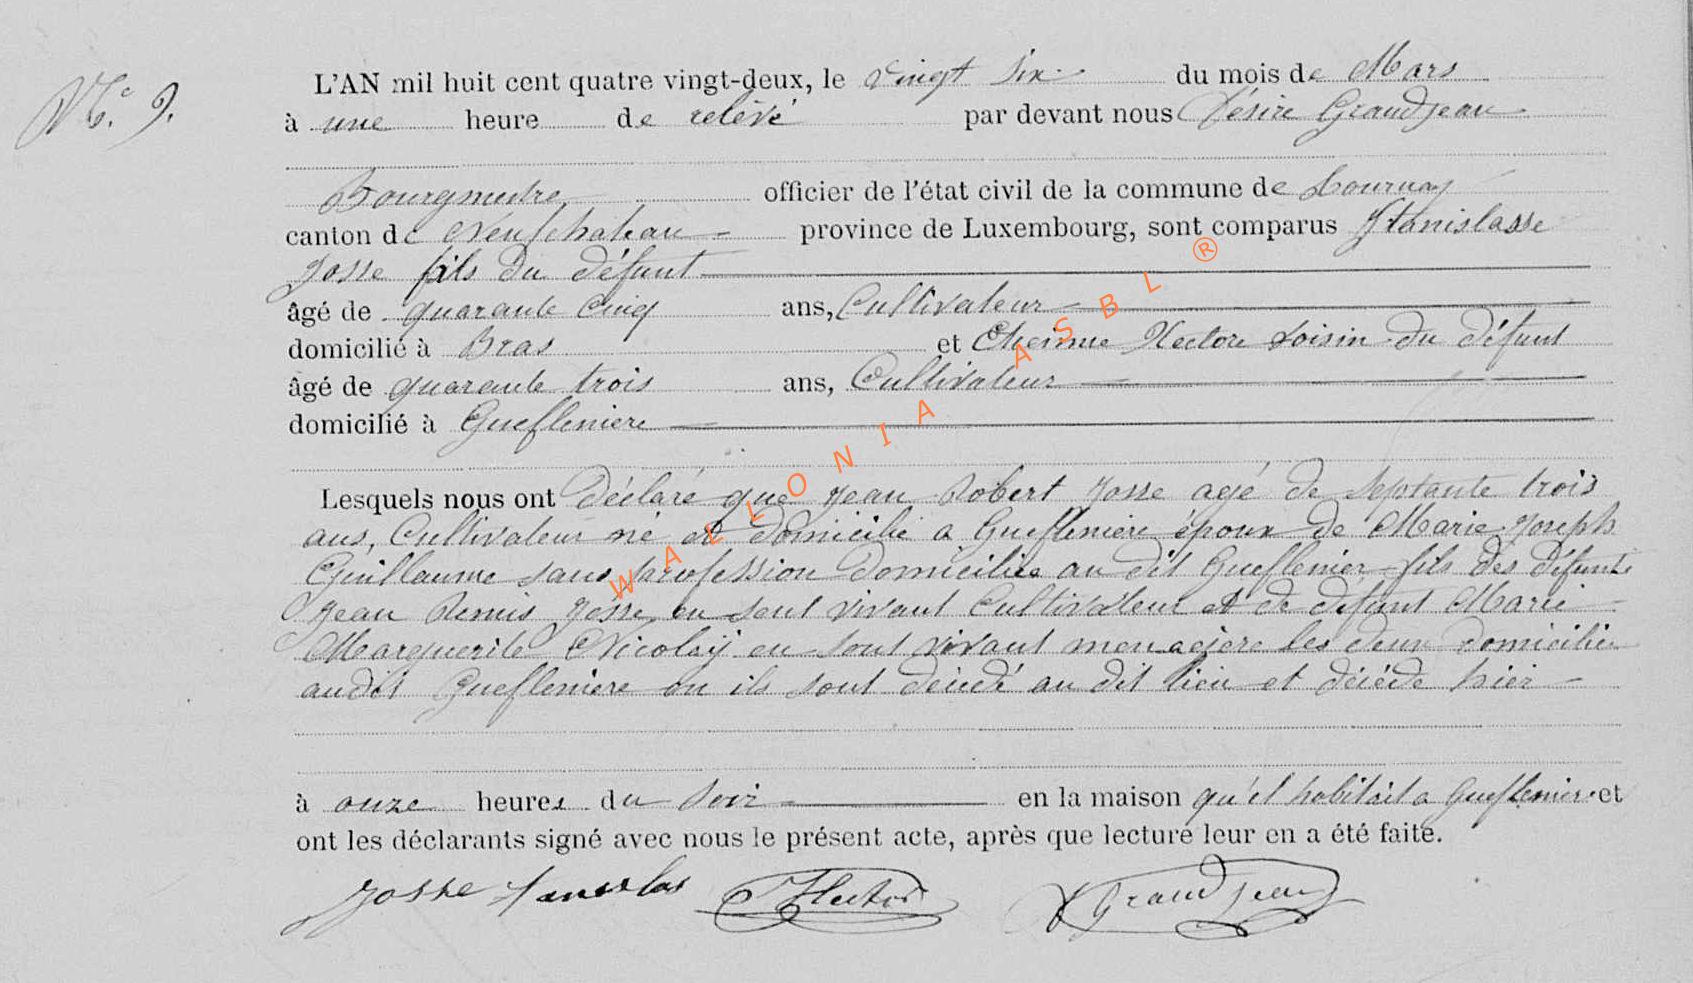 N° 9.
L'AN mil huit cent quatre vingt-deux, le vingt six du mois de Mars
à une heure de relévé par devant nous Désiré Grandjean
Bourgmestre officier de l'état civil de la commune de Tournay
canton de Neufchateau province de Luxembourg, sont comparus Stanislasse
Josse fils du défunt
âgé de quarante cinq ans, Cultivateur
domicilié à Bras et Etienne Hectore Voisin du défunt
âgé de quarante trois ans, Cultivateur
domicilié à Grueflenière
Lesquels nous ont déclaré que Jean Robert Josse agé de septante trois
ans, Cultivateur né et domicilié a Grueflenière époux de Marie Joseph
Guillaume sans profession domiciliée au dit Grueflenier fils des défunts
Jean Remis Josse en sont vivant Cultivateur et de défunt Marie
Marguerite Nicolaÿ en sont vivant menagère les deux domicilié
audit Grueflenière ou ils sont décédé au dit lieu et décédé hier
à onze heures du soir en la maison qu'il habitait a Grueflenière et
ont les déclarants signé avec nous le présent acte, après que lecture leur en a été faite.
Josse Stanislas Hector D Grandjean
WALLONIA ASBL ®